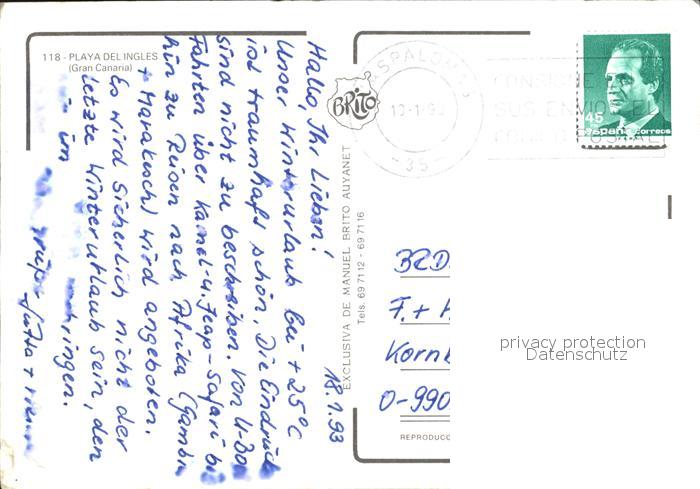 118 - PLAYA DEL INGLES
(Gran Canaria)
18.1.93
Hallo, Ihr Lieben!
Unser Winterurlaub bei +25°C
ist traumhaft schön. Die Eindrück
sind nicht zu beschreiben. Von U-Boo
Fahrten über Kamel- u. Jeep-Safari bi
hin zu Reisen nach Afrika (Gambia
+ Marakesch) wird angeboten.
Es wird sicherlich nicht der
letzte Winterurlaub sein, den
wir im
Jutta +
BRITO
EXCLUSIVA DE MANUEL BRITO AUYANET
Tels. 69 71 12 - 69 71 16
ESPALOMAS
-35-
CONSIGNE
SUS ENVIOS EL
CODIGO POSTAL
45
españa correos
BRD
F. + H
Kornb
O-990
REPRODUCC
privacy protection
Datenschutz